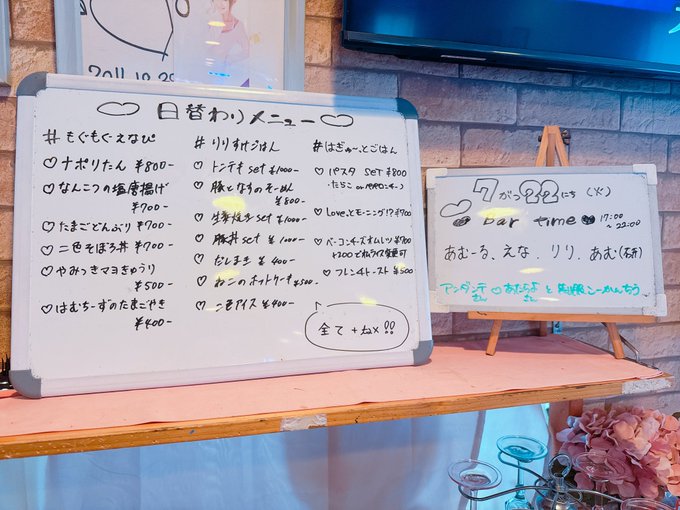 2011.12.29
♡ 日替わりメニュー ♡
# もぐもぐえなぴ
♡ ナポリたん ¥800-
♡ なんこつの塩唐揚げ
¥700-
♡ たまごどんぶり ¥700-
♡ 二色そぼろ丼 ¥700-
♡ やみつきマヨきゅうり
¥500-
♡ はむちーずのたまごやき
¥400-
# りりすけごはん
♡ トンテキ set ¥1000-
♡ 豚となすのそーめん
¥800-
♡ 生姜焼き set ¥1000-
♡ 豚丼 set ¥1000-
♡ だしまき ¥400-
♡ ねこのホットケーキ ¥500-
♡ 二色アイス ¥400-
# はぎゅ〜っとごはん
♡ パスタ SET ¥800
たらこ or ペペロンチーノ
♡ Love.とモーニング!? ¥700
♡ ベーコンチーズオムレツ ¥700
+200でオムライス変更可
♡ フレンチトースト ¥500
全て +tax!!
7がつ22にち (火)
♡ bar time
17:00
~ 22:00
あむーる、えな、りり、あむ
アンダンテさん ♡ あたらよさん と